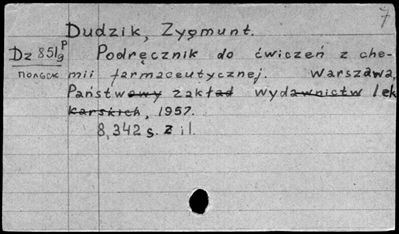 7
Dudzik, Zygmunt.
Dz 851g P Podręcznik do ćwiczeń z che-
полвок mii farmaceutycznej. Warszawa,
Państwowy zakład wydawnictw lek
karskich, 1957.
8,342 s. z il.